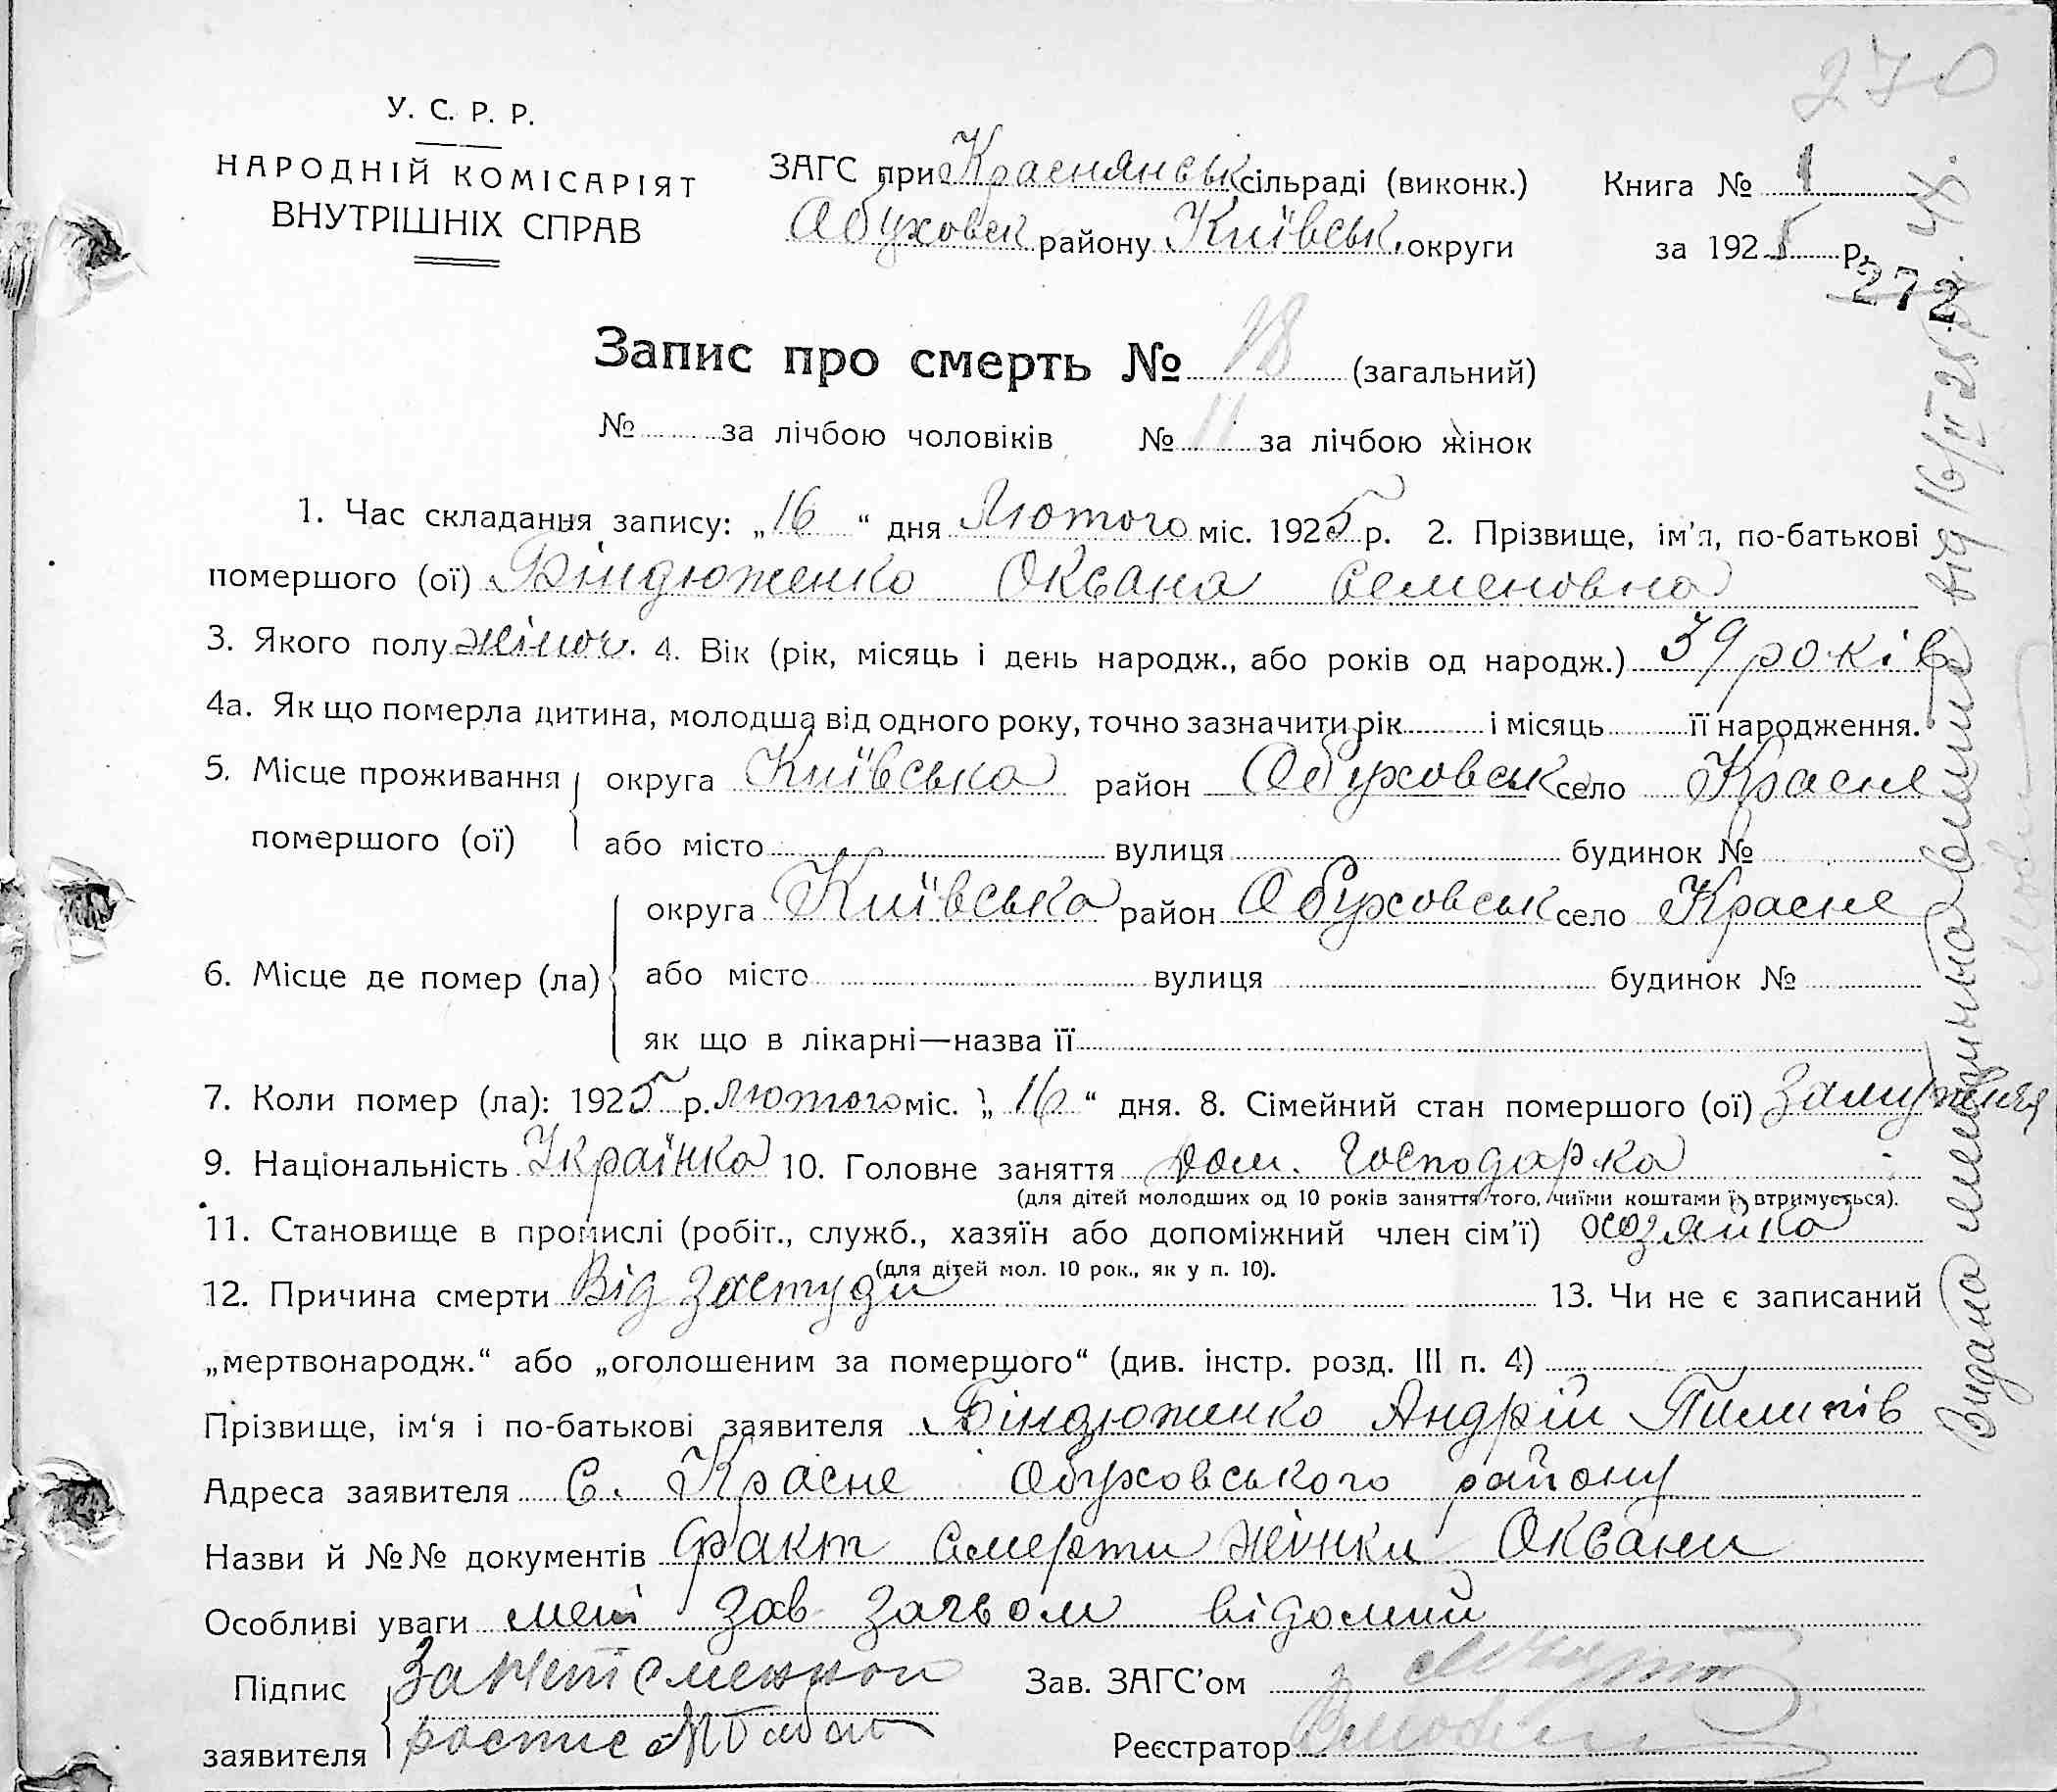 270
У. С. Р. Р.
НАРОДНІЙ КОМІСАРІЯТ
ВНУТРІШНІХ СПРАВ
ЗАГС при Краснянськ сільраді (виконк.)
Обуховск району Київськ. округи
Книга № 1
за 1925 р.
272
Запис про смерть № 18 (загальний)
№ за лічбою чоловіків № 11 за лічбою жінок
1. Час складання запису: „16“ дня Лютого міс. 1925 р. 2. Прізвище, ім'я, по-батькові
помершого (ої) Біндюженко Оксана Семеновна
3. Якого полу жіноч. 4. Вік (рік, місяць і день народж., або років од народж.) 39 років
4а. Як що померла дитина, молодша від одного року, точно зазначити рік і місяць її народження.
5. Місце проживання помершого (ої) округа Київська район Обуховск село Красне
або місто вулиця будинок №
6. Місце де помер (ла) округа Київська район Обуховськ село Красне
або місто вулиця будинок №
як що в лікарні—назва її
7. Коли помер (ла): 1925 р. лютого міс. „16“ дня. 8. Сімейний стан помершого (ої) Замужня
9. Національність Українка 10. Головне заняття Дом. Господарка
(для дітей молодших од 10 років заняття того, чиїми коштами її втримується).
11. Становище в промислі (робіт., служб., хазяїн або допоміжний член сім'ї) хозяйка
(для дітей мол. 10 рок., як у п. 10).
12. Причина смерти Від застуди 13. Чи не є записаний
„мертвонародж.“ або „оголошеним за помершого“ (див. інстр. розд. III п. 4)
Прізвище, ім'я і по-батькові заявителя Біндюженко Андрій Пилипів
Адреса заявителя С. Красне Обуховського району
Назви й №№ документів факт смерти жінки Оксани
Особливі уваги мені зав загсом відомий
Підпис заявителя За неписменного
роспис
Зав. ЗАГС'ом
Реєстратор
Видано від 16/II 25 р.